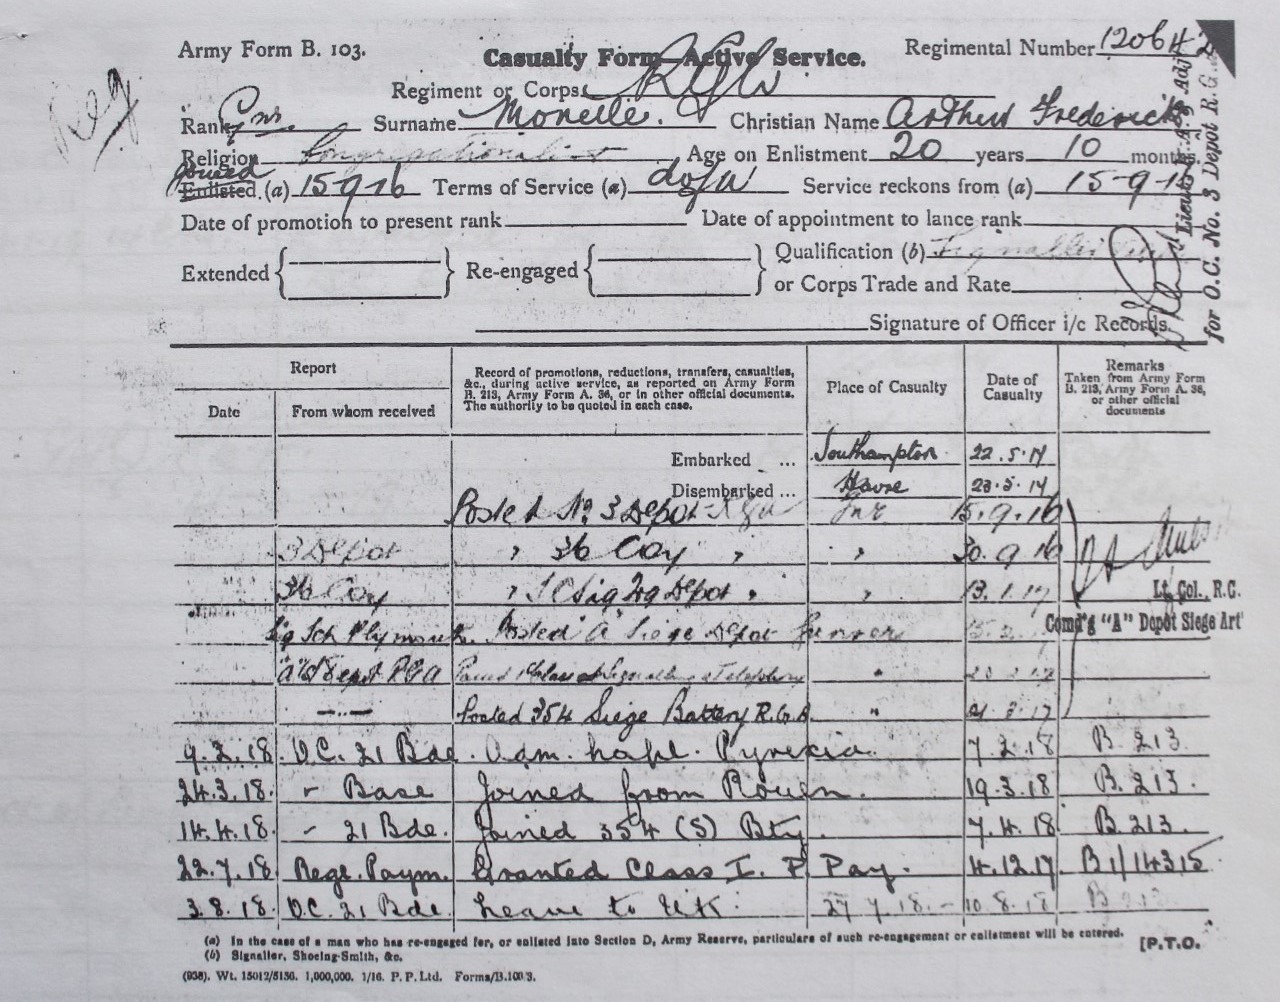 Army Form B. 103.
Casualty Form—Active Service.
Regimental Number 120642
Reg
Regiment or Corps RGA
Rank Gnr. Surname Monelle. Christian Name Arthur Frederick
Religion Congregationalist Age on Enlistment 20 years 10 months.
Joined
Enlisted (a) 15 9 16 Terms of Service (a) dofw Service reckons from (a) 15-9-16
Date of promotion to present rank Date of appointment to lance rank
Extended Re-engaged Qualification (b) Signaller
or Corps Trade and Rate
Signature of Officer i/c Records.
Lieut. R.G.A. Adjt.
for O.C. No. 3 Depot R.G.
Report
Date From whom received
Record of promotions, reductions, transfers, casualties, &c., during active service, as reported on Army Form B. 213, Army Form A. 36, or in other official documents. The authority to be quoted in each case.
Place of Casualty
Date of Casualty
Remarks
Taken from Army Form B. 213, Army Form A. 36, or other official documents
Embarked ... Southampton 22.5.17
Disembarked ... Havre 23.5.17
Posted No 3 Depot RGA Gnr 15.9.16
3 Depot " 36 Coy " " 30.9.16
36 Coy " Sig Depot " " 13.1.17
Lt. Col., R.G.
Comd'g "A" Depot Siege Art
Sig Sch Plymouth. Posted A Siege Depot Gunner 15.2
"A" Depot RGA Passed 1 Class Signalling & Telephony "
—"— Posted 354 Siege Battery R.G.A. " 21.3.17
9.2.18 O.C. 21 Bde. Adm. hospl. Pyrexia. 7.2.18 B. 213
24.3.18. " Base Joined from Rouen. 19.3.18 B. 213.
14.4.18. " 21 Bde. Joined 354 (S) Bty. 7.4.18 B. 213.
22.7.18 Regl. Paym. Granted Class I. P. Pay. 4.12.17 B1/14315
3.8.18. O.C. 21 Bde. Leave to UK. 27.7.18.- 10.8.18 B 213
(a) In the case of a man who has re-engaged for, or enlisted into Section D, Army Reserve, particulars of such re-engagement or enlistment will be entered.
(b) Signaller, Shoeing-Smith, &c.
[P.T.O.
(938). Wt. 15012/5156. 1,000,000. 1/16. P. P. Ltd. Forms/B.103/3.